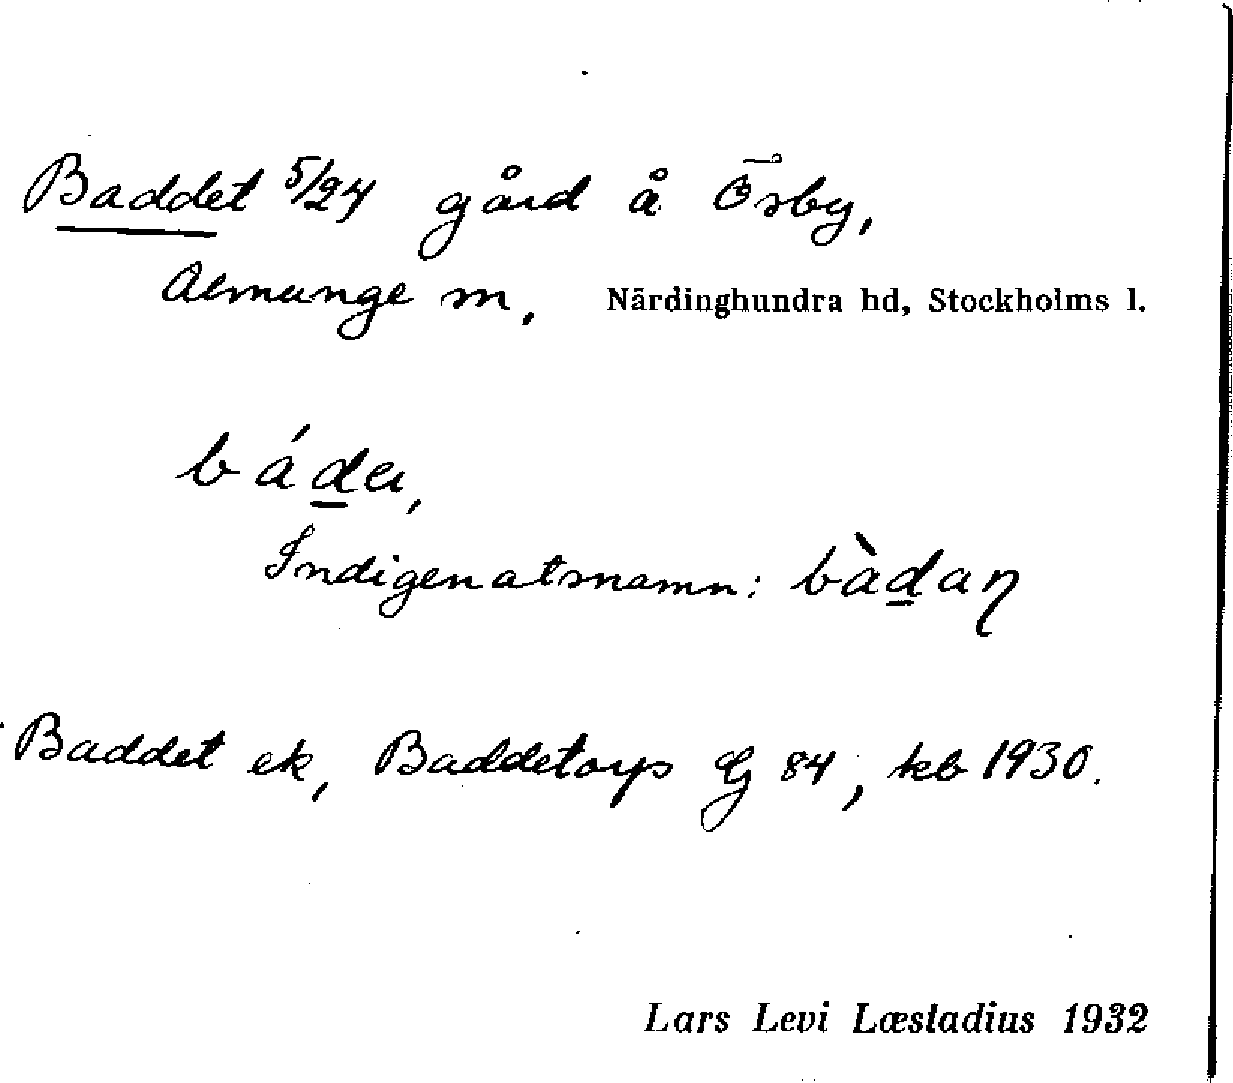 Baddet 5/24 gård å Ösby,
Almunge sn, Närdinghundra hd, Stockholms l.
báde,
Indigenatsnamn: bàdaη
Baddet ek, Baddetorp G 84, kb 1930.
Lars Levi Læstadius 1932